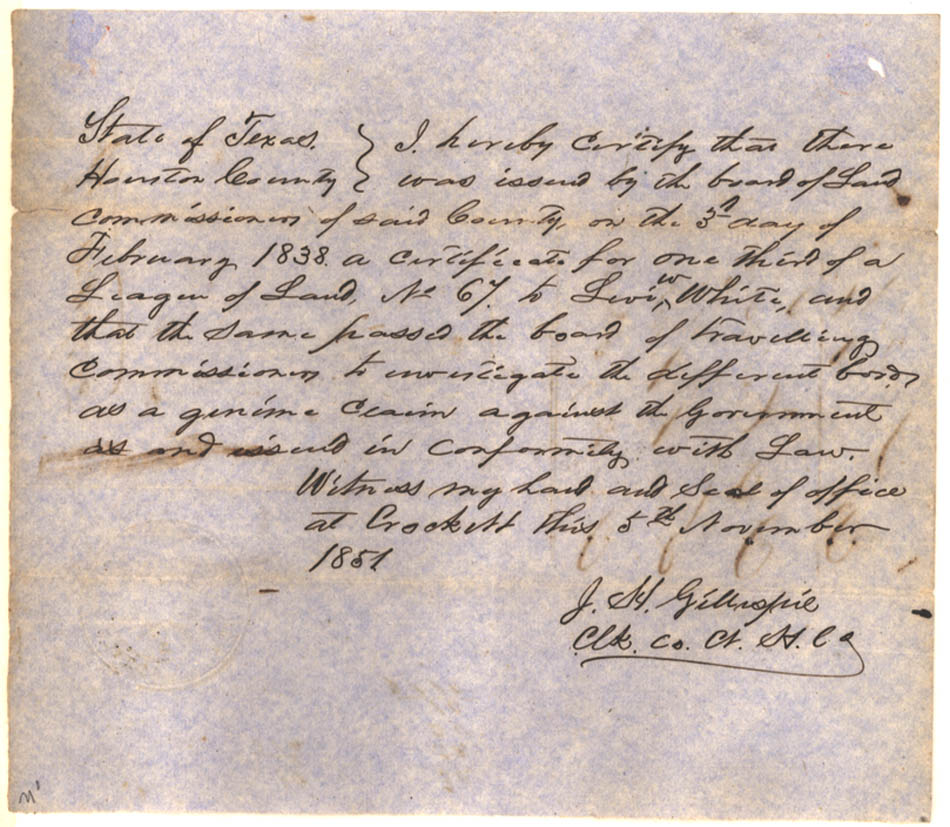 State of Texas. } I. hereby certify that there
Houston County } was issued by the board of Land
commissioners of said County, on the 3d day of
February 1838. a certificate for one third of a
League of Land, No 67. to Levi W White, and
that the same passed the board of travelling
commissioners to investigate the different bords
as a genuine claim against the Government
as and issued in conformity with Law.
Witness my hand and Seal of office
at Crockett this 5th November
1851
J. H. Gillespie
Clk. Co. Ct. H. Co